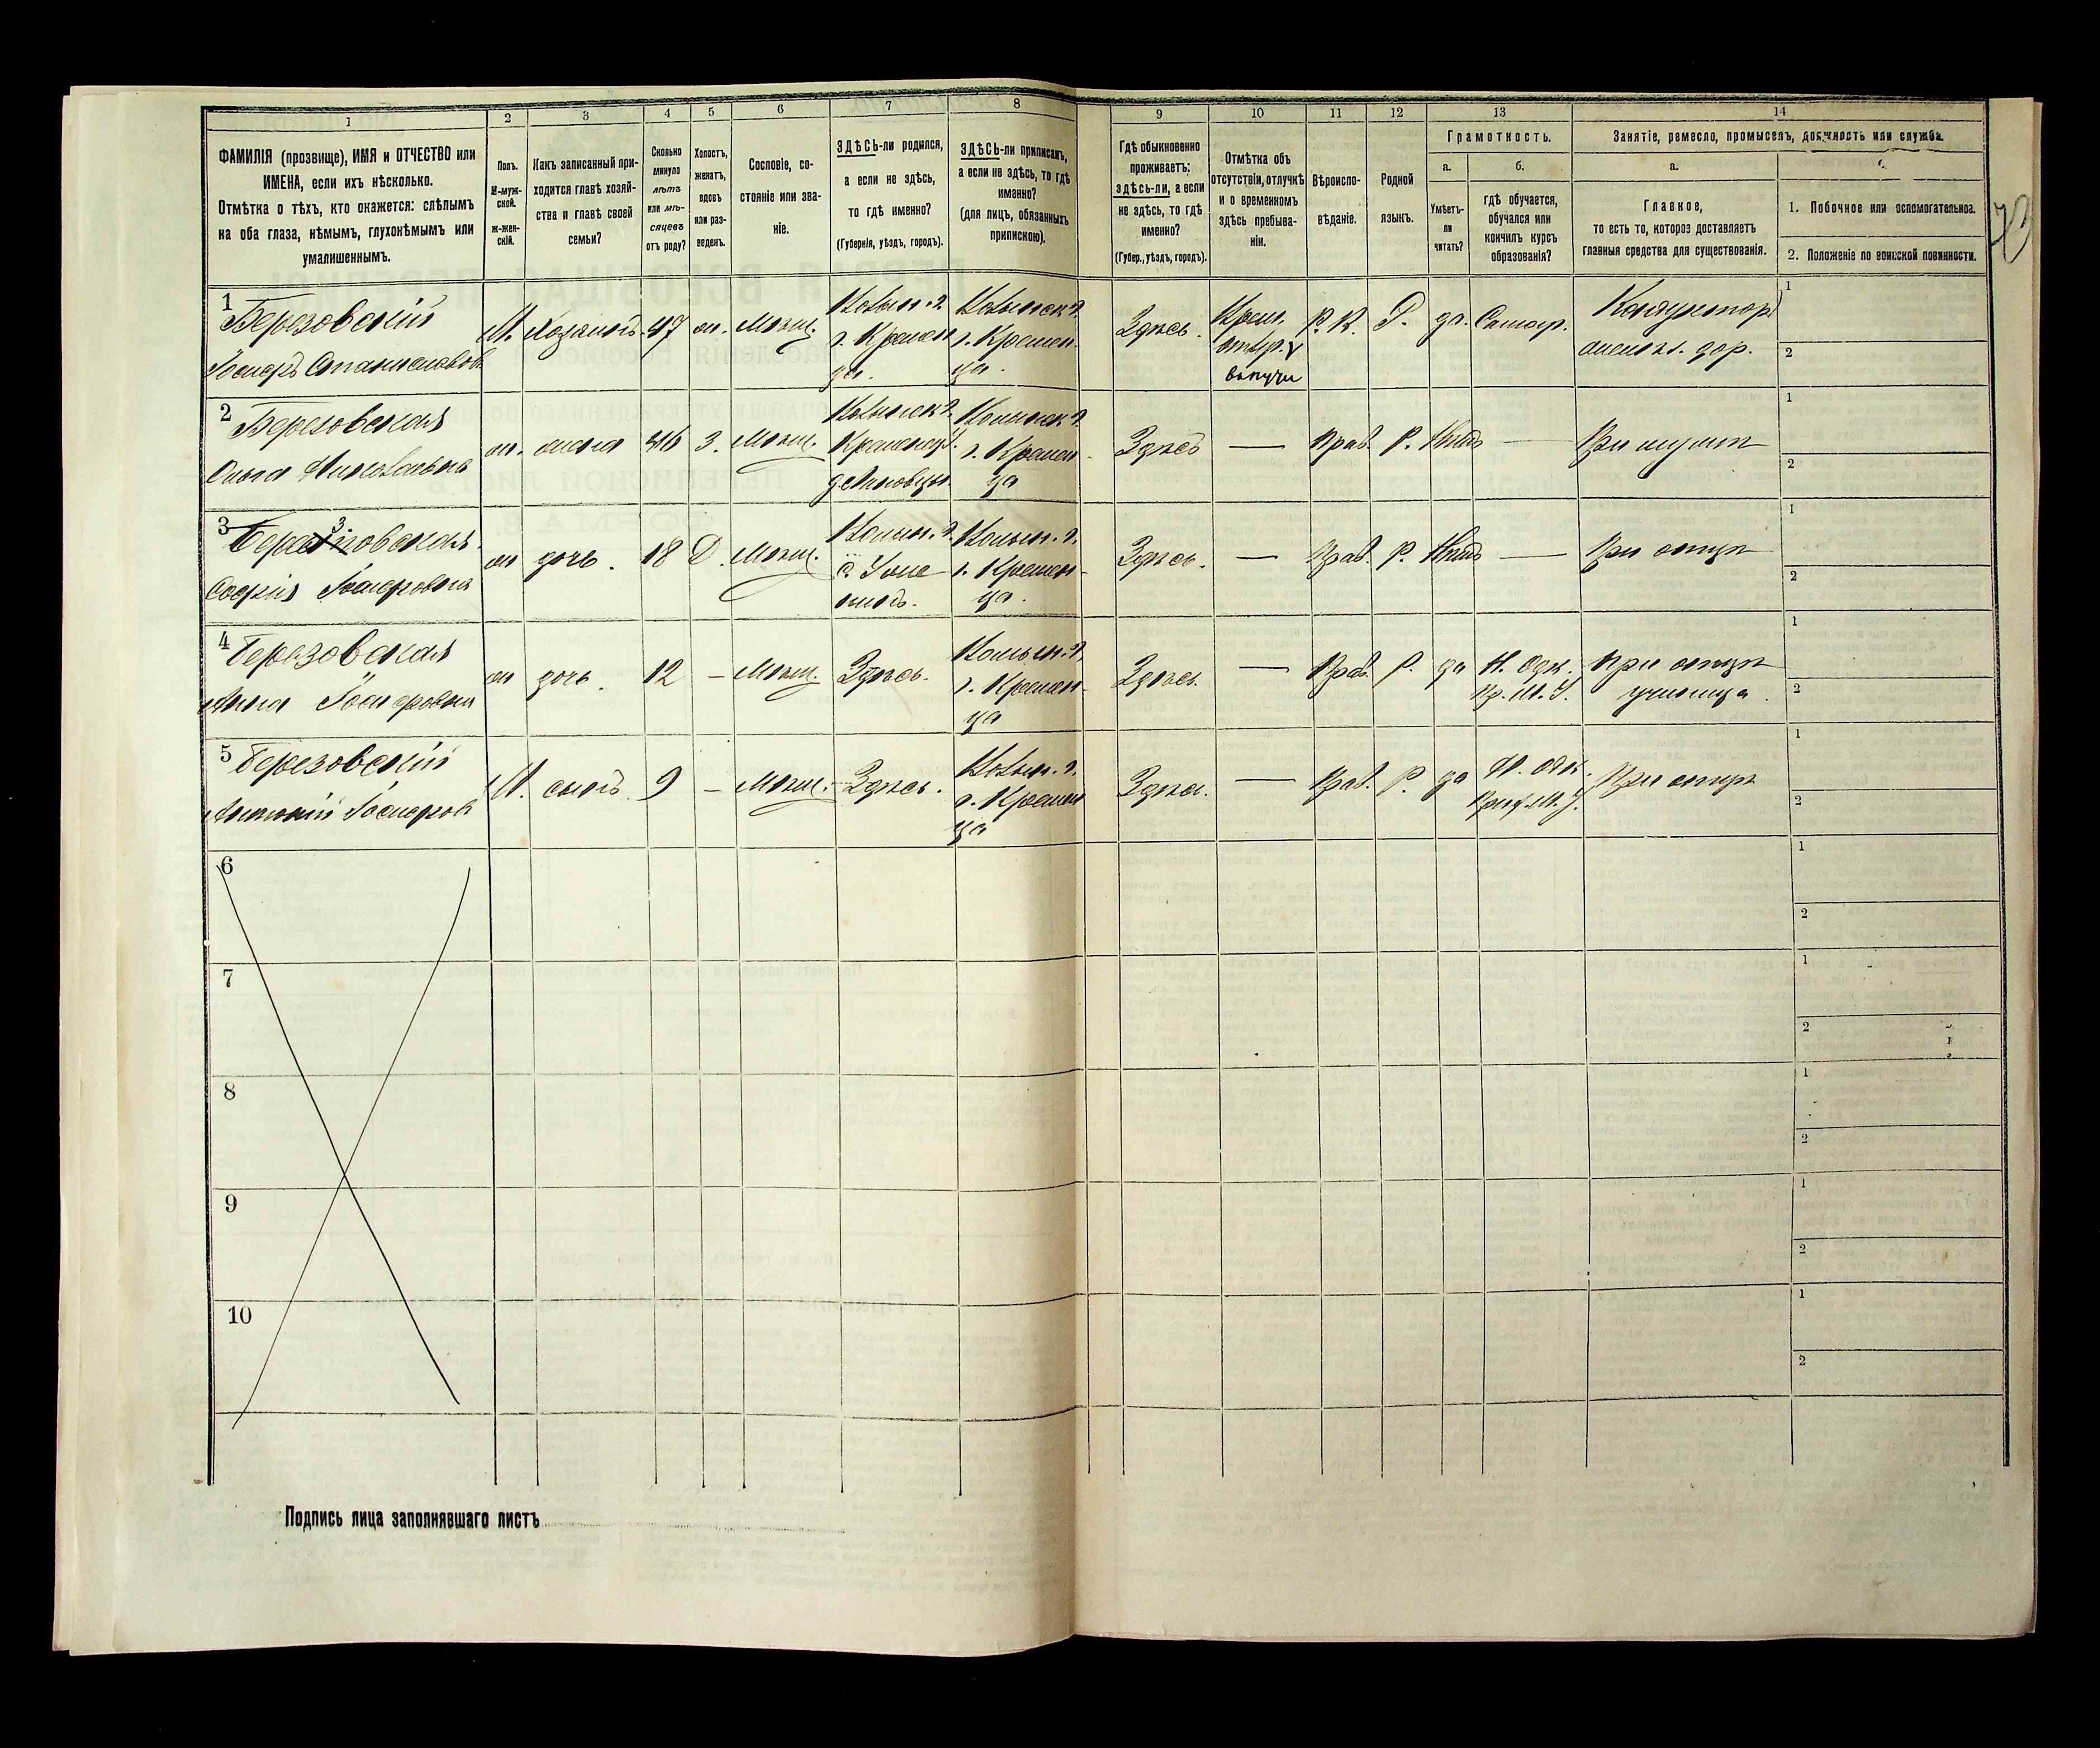 1
2
3
4
5
6
7
8
9
10
11
12
13
14
ФАМИЛІЯ (прозвище), ИМЯ и ОТЧЕСТВО или
ИМЕНА, если ихъ нѣсколько.
Отмѣтка о тѣхъ, кто окажется: слѣпымъ
на оба глаза, нѣмымъ, глухонѣмымъ или
умалишеннымъ.
Полъ.
М-муж-
ской.
Ж-жен-
скій.
Какъ записанный при-
ходится главѣ хозяй-
ства и главѣ своей
семьи?
Сколько
минуло
лѣтъ
или мѣ-
сяцевъ
отъ роду?
Холостъ,
женатъ,
вдовъ
или раз-
веденъ.
Сословіе, со-
стояніе или зва-
ніе.
ЗДѢСЬ-ли родился,
а если не здѣсь,
то гдѣ именно?
(Губернія, уѣздъ, городъ).
ЗДѢСЬ-ли приписанъ,
а если не здѣсь, то гдѣ
именно?
(для лицъ, обязанныхъ
припискою).
Гдѣ обыкновенно
проживаетъ:
здѣсь-ли, а если
не здѣсь, то гдѣ
именно?
(Губер., уѣздъ, городъ).
Отмѣтка объ
отсутствіи, отлучкѣ
и о временномъ
здѣсь пребыва-
ніи.
Вѣроиспо-
вѣданіе.
Родной
языкъ.
Грамотность.
а.
Умѣетъ-
ли
читать?
б.
гдѣ обучается,
обучался или
кончилъ курсъ
образованія?
Занятіе, ремесло, промыселъ, должность или служба.
а.
Главное,
то есть то, которое доставляетъ
главныя средства для существованія.
1. Побочное или вспомогательное.
2. Положеніе по воинской повинности.
1
Березовскій
Іосифъ Станиславов
М. Хозяинъ 47 ж. Мѣщ.
г. Кремен
ца.
г. Кремен
ца.
Здѣсь.
Р. К. Р. да.
Кондукторъ
желѣз. дор.
1
2
2
Березовская
Ольга Николаевна
ж. жена 46 З. Мѣщ.
г. Кремен-
ца
Здѣсь — Прав. Р. Нѣтъ —
При мужѣ
1
2
3
овская
Софія Іосифовна
ж дочь. 18 Д. Мѣщ.
Волын. г.
г. Кремен-
ца.
Здѣсь. — Прав. Р. Нѣтъ —
При отцѣ
1
2
4
Березовская
Анна Іосифовна
ж дочь. 12 — Мѣщ. Здѣсь.
Волын. г.
г. Кремен-
ца
Здѣсь. — Прав. Р. да
При отцѣ
ученица.
1
2
5
Березовскій
Антоній Іосифов
М. сынъ 9 — Мѣщ. Здѣсь.
Волын. г.
г. Кремен
ца
Здѣсь. — Прав. Р. да
При отцѣ
1
2
6
1
2
7
1
2
8
1
2
9
1
2
10
1
2
Подпись лица заполнявшаго листъ